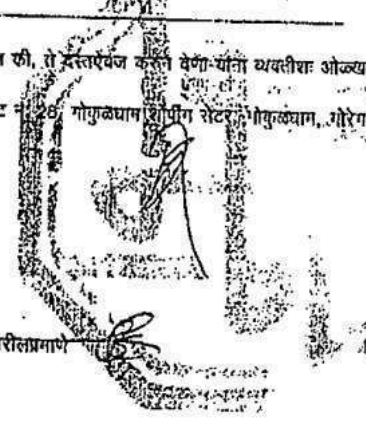 की, ते दस्तऐवज करुन देणा-यांना व्यक्तीशः ओळख
28, गोकुळधाम शॉपींग सेंटर, गोकुळधाम, गोरेग
रीलप्रमाणे